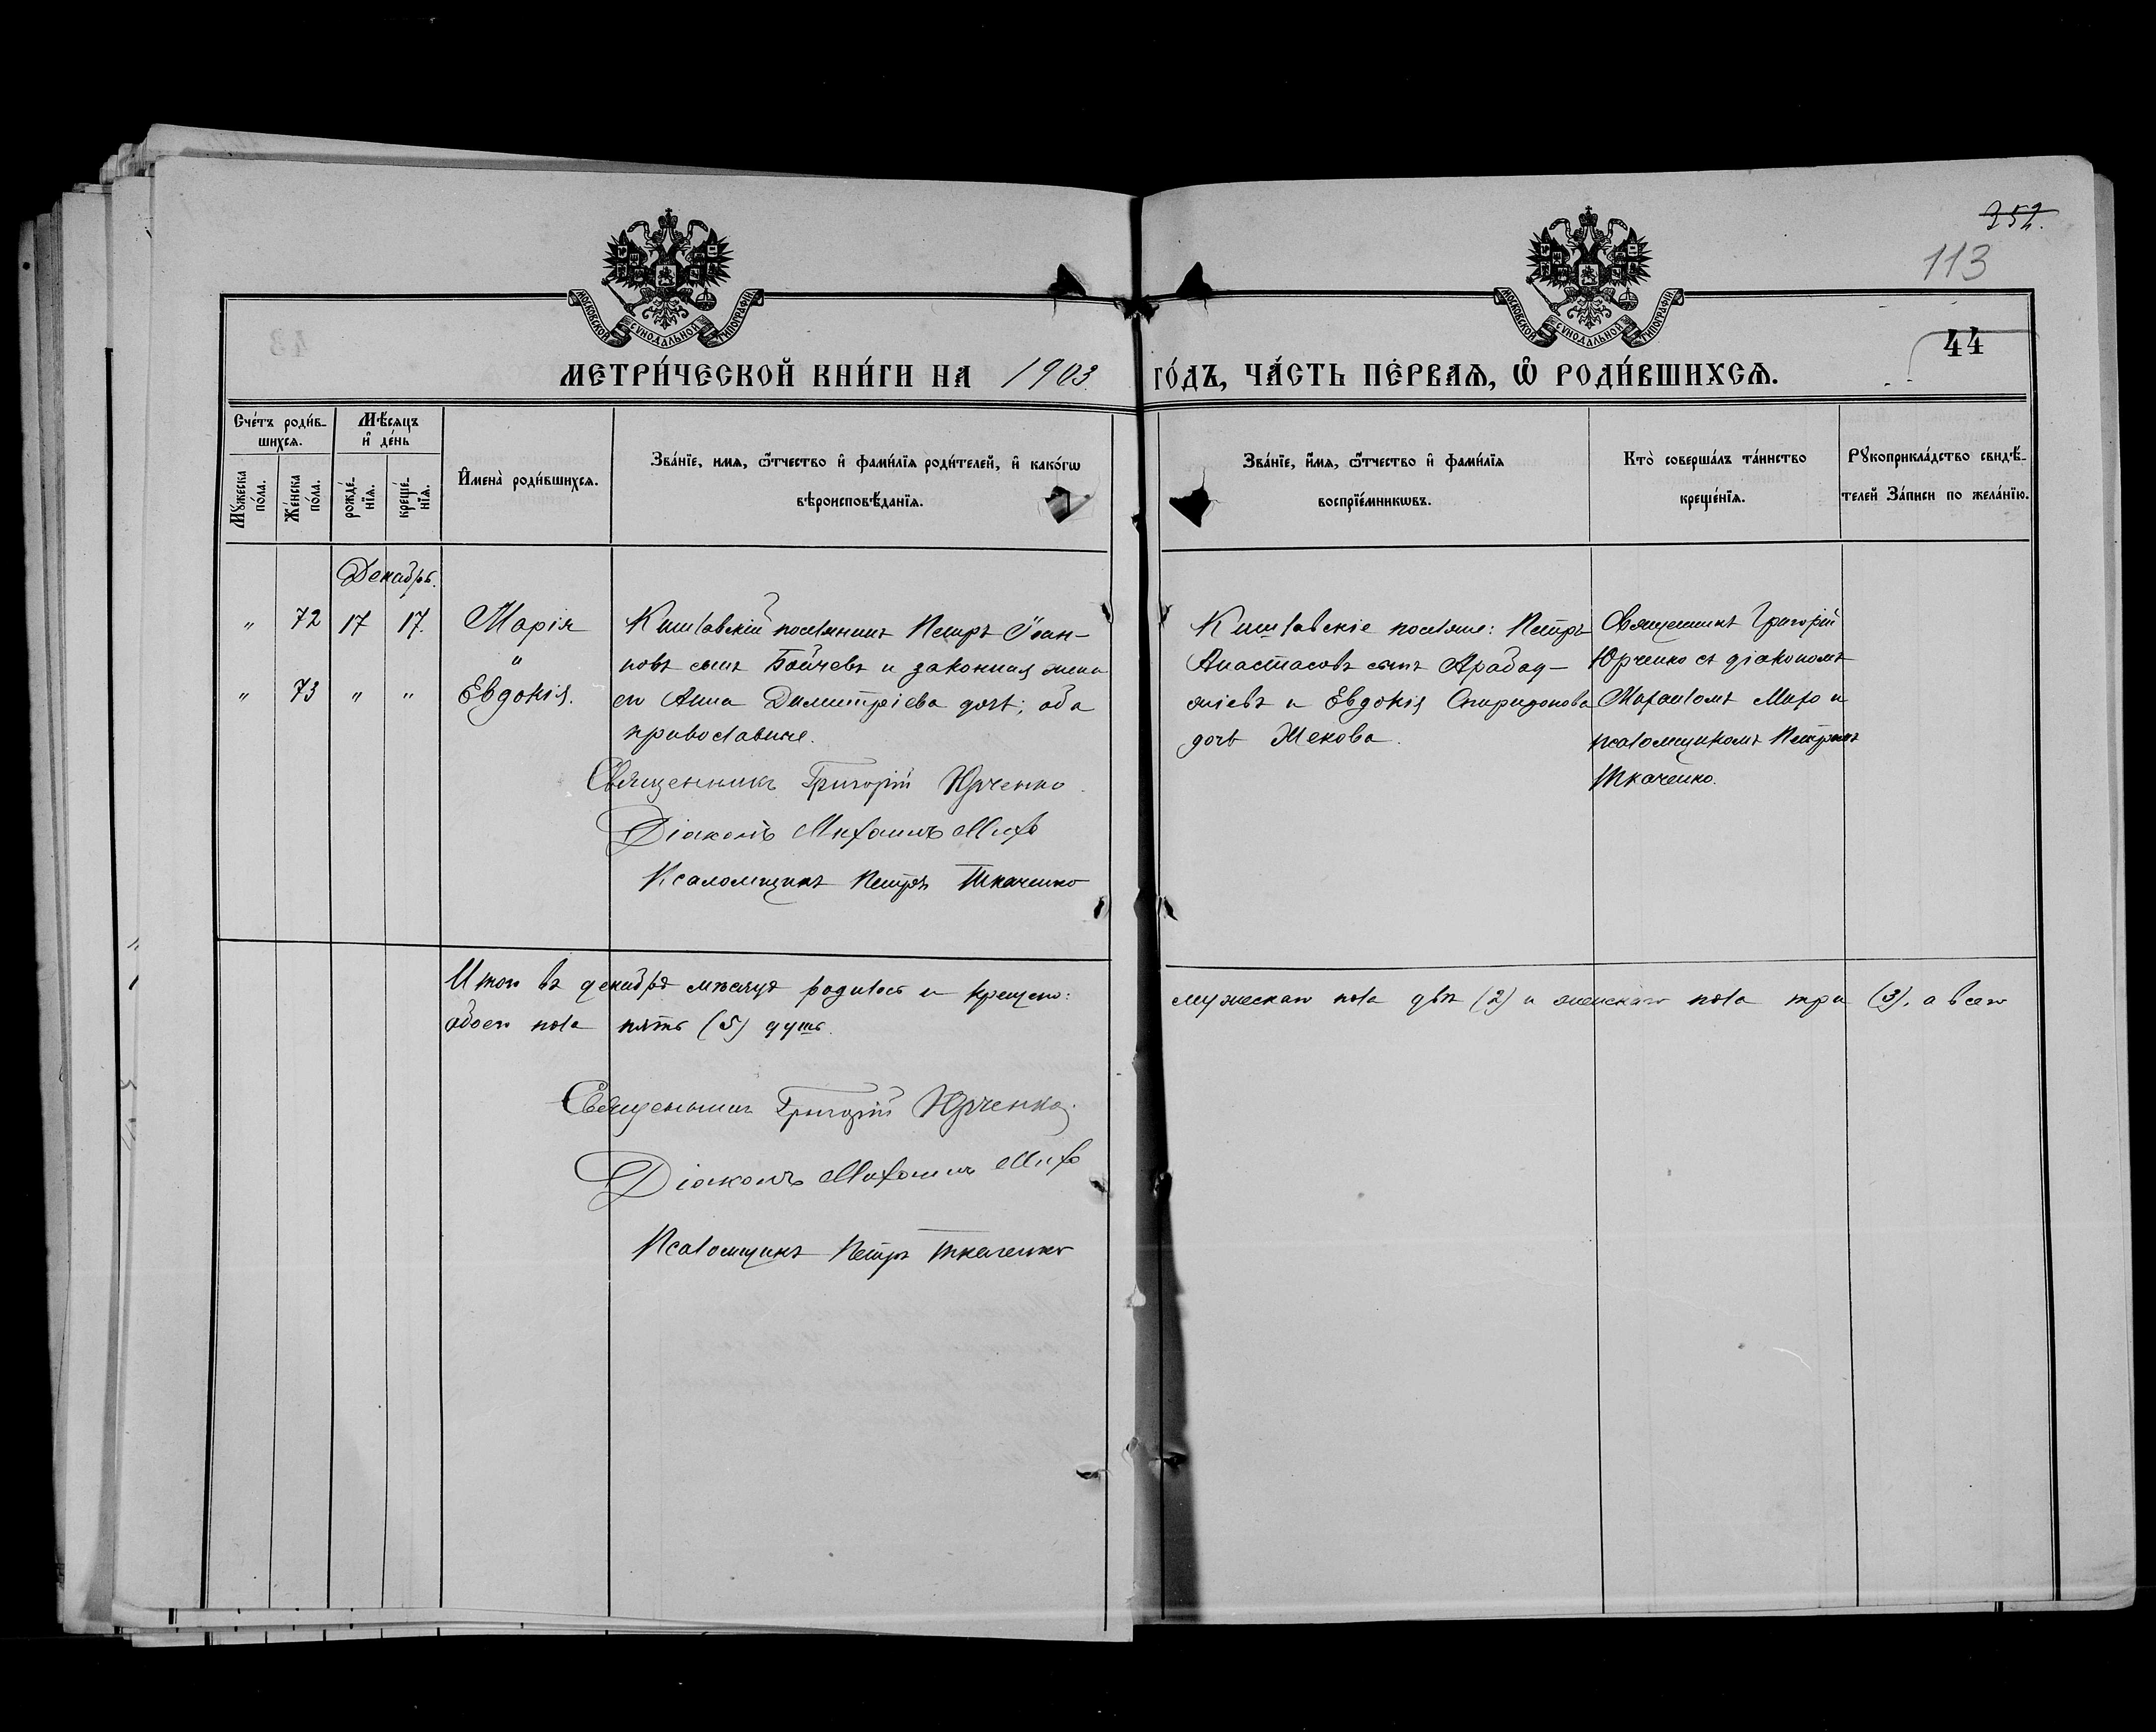 352.
113
44
МОСКОВСКОЙ СѴНОДАЛЬНОЙ ТИПОГРАФІИ
МОСКОВСКОЙ СѴНОДАЛЬНОЙ ТИПОГРАФІИ
МЕТРИ́ЧЕСКОЙ КНИ́ГИ НА 1903. ГО́ДЪ, ЧА́СТЬ ПЕ́РВАЯ, Ѡ҆ РОДИ́ВШИХСЯ.
Сче́тъ роди́в-
шихся.
Мѣ́сяцъ
и҆ де́нь
Мꙋ́жеска по́ла.
Же́нска по́ла.
рожде́-
нїя.
креще́-
нїя.
И҆мена̀ роди́вшихся.
Зва́нїе, имя, ѻ҆́тчество и҆ фами́лїя роди́телей, и҆ како́гѡ
вѣроисповѣ́данїя.
Зва́нїе, и҆́мя, ѻ҆́тчество и҆ фами́лїя
воспрїе́мникѡвъ.
Кто̀ соверша́лъ та́инство
креще́нїя.
Рꙋкоприкла́дство свидѣ́-
телей За́писи по жела́нїю.
Декабрь.
" 72 17 17. Марія
"
" 73 " " Евдокія.
Кишлавскій поселянинъ Петръ Іоан-
новъ сынъ Бойчевъ и законная жена
его Анна Димитріева дочь; оба
православные.
Священникъ Григорій Юрченко.
Діаконъ Михаилъ Мирo
Псаломщикъ Петръ Ткаченко
Кишлавскіе поселяне: Петръ
Анастасовъ сынъ Арабад-
жіевъ и Евдокія Спиридонова
дочь Жекова.
Священникъ Григорій
Юрченко съ діакономъ
Михаиломъ Миро и
псаломщикомъ Петромъ
Ткаченко.
Итого въ декабрѣ мѣсяцѣ родилось и крещено: мужескаго пола двѣ (2) и женскаго пола три (3), а всего
обоего пола пять (5) душъ.
Священникъ Григорій Юрченко.
Діаконъ Михаилъ Миро
Псаломщикъ Петръ Ткаченко